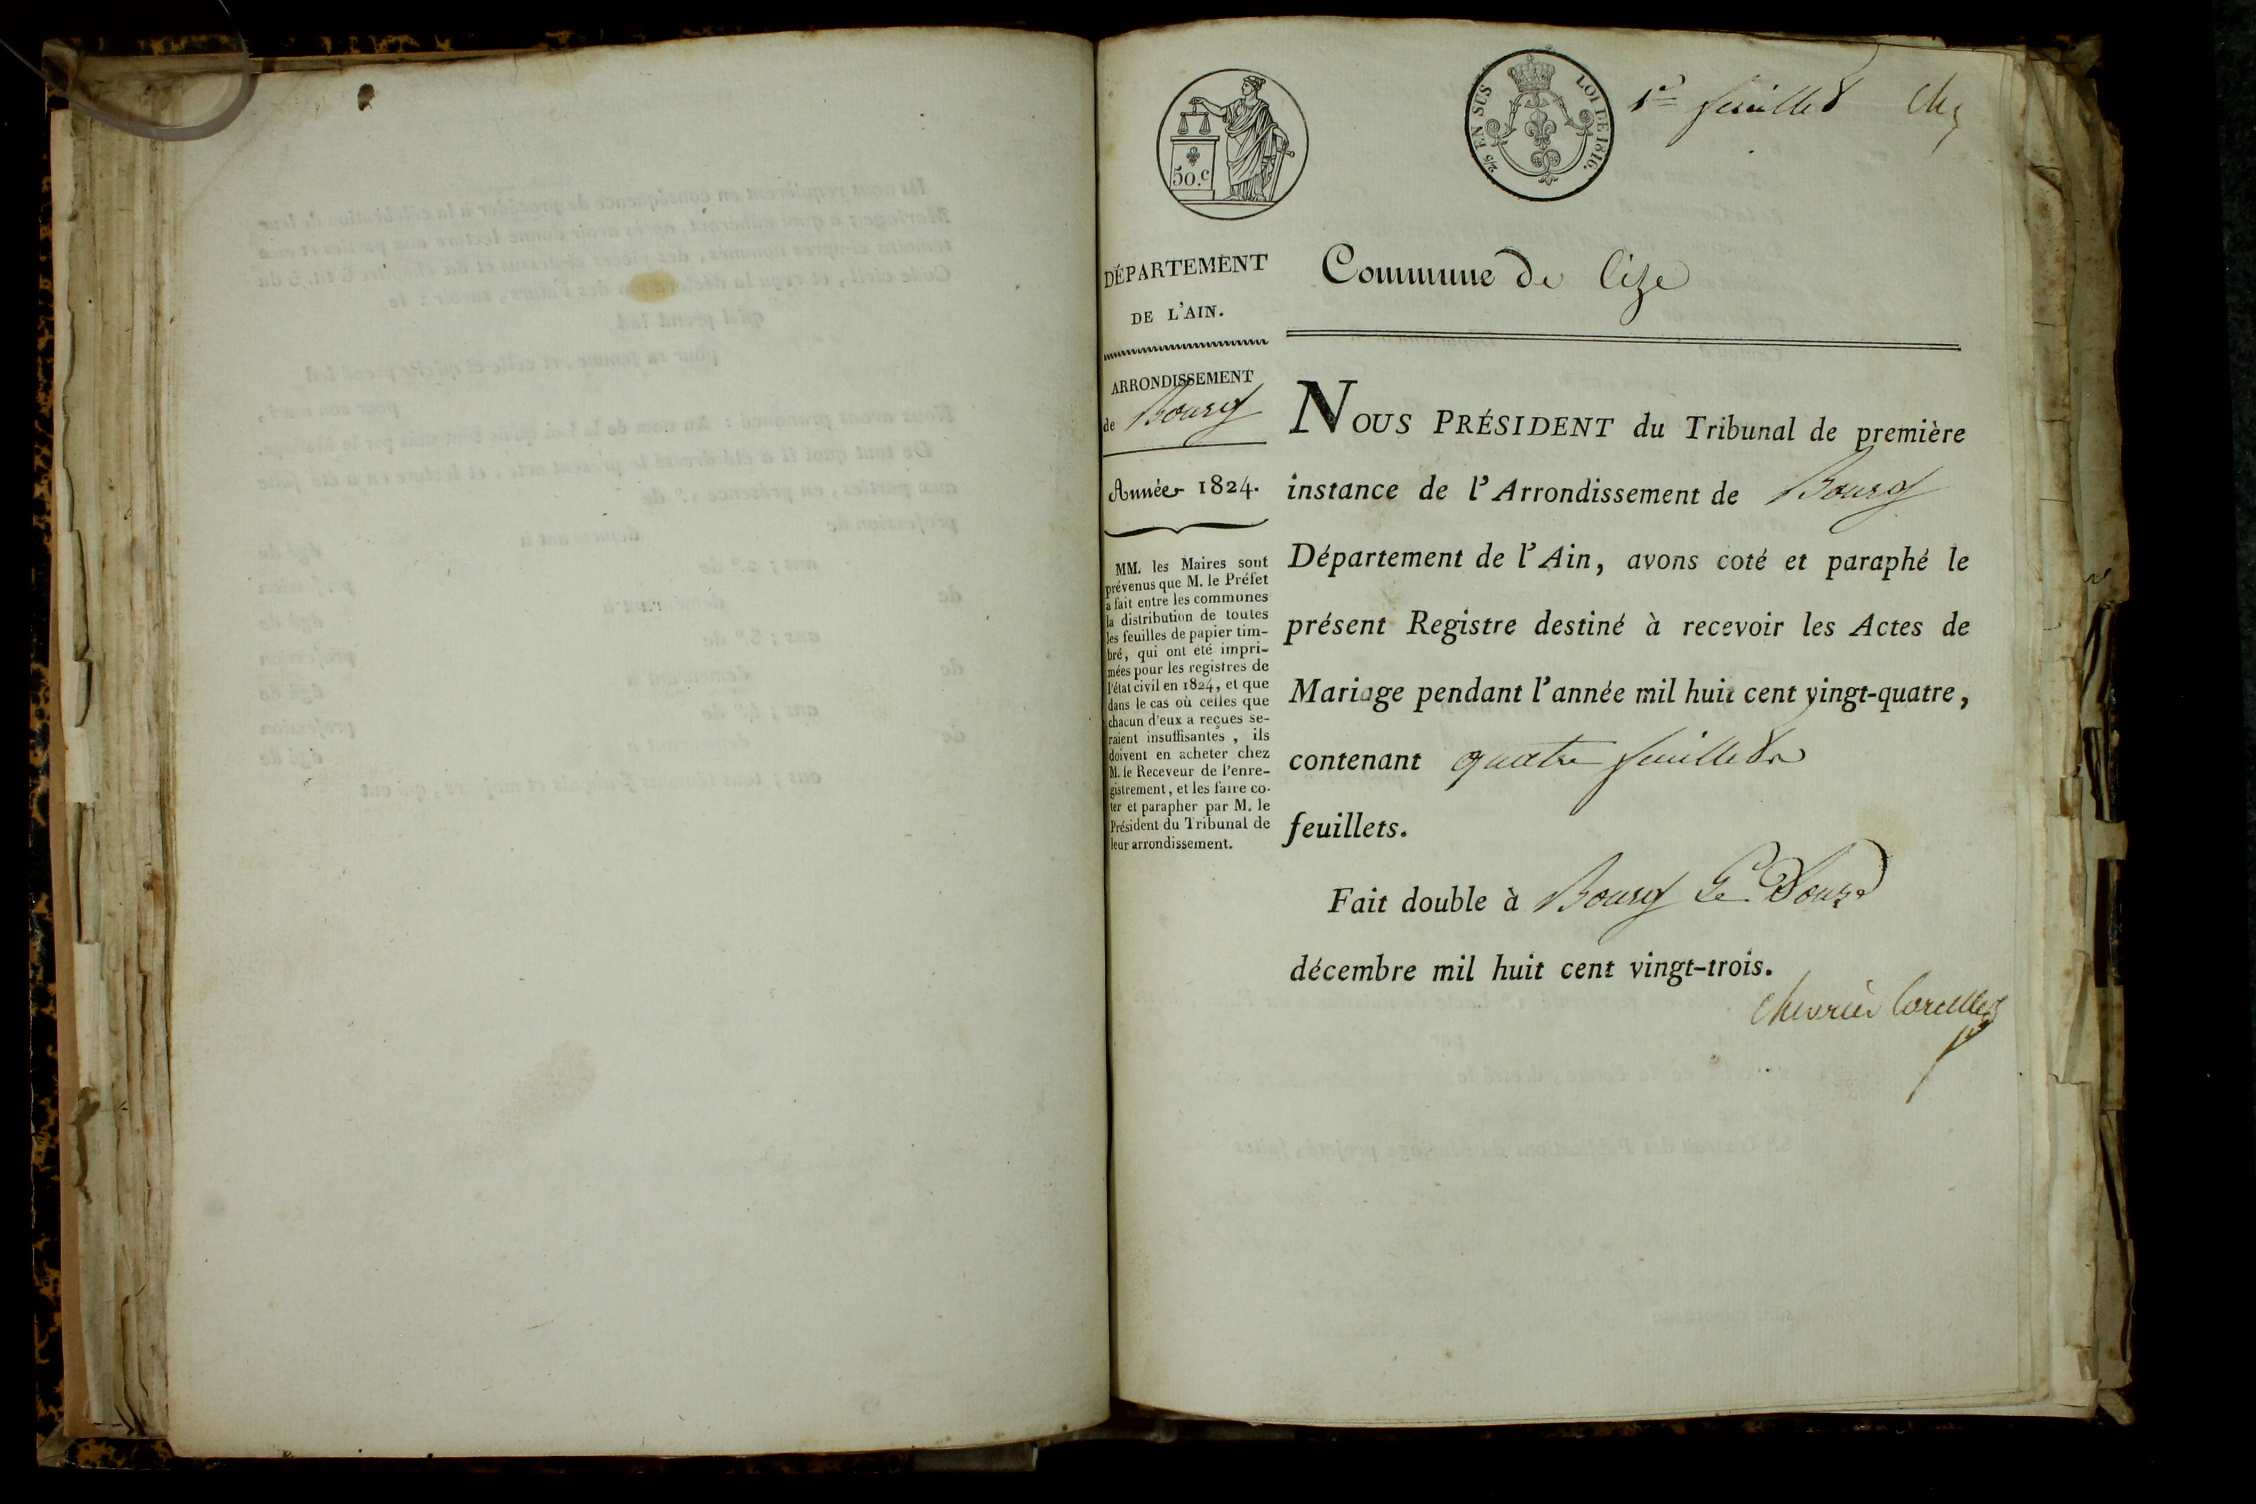 50.c
2/5 EN SUS
LOI DE 1816.
1er feuillet Ch
DÉPARTEMENT
DE L'AIN.
ARRONDISSEMENT
de Bourg
Année 1824.
MM. les Maires sont
prévenus que M. le Préfet
a fait entre les communes
la distribution de toutes
les feuilles de papier tim-
bré, qui ont été impri-
mées pour les registres de
l'état civil en 1824, et que
dans le cas où celles que
chacun d'eux a reçues se-
raient insuffisantes, ils
doivent en acheter chez
M. le Receveur de l'enre-
gistrement, et les faire co-
ter et parapher par M. le
Président du Tribunal de
leur arrondissement.
Commune de Cize
NOUS PRÉSIDENT du Tribunal de première
instance de l'Arrondissement de Bourg
Département de l'Ain, avons coté et paraphé le
présent Registre destiné à recevoir les Actes de
Mariage pendant l'année mil huit cent vingt-quatre,
contenant quatre feuillets
feuillets.
Fait double à Bourg Le Douze
décembre mil huit cent vingt-trois.
Chevrier Corcelles